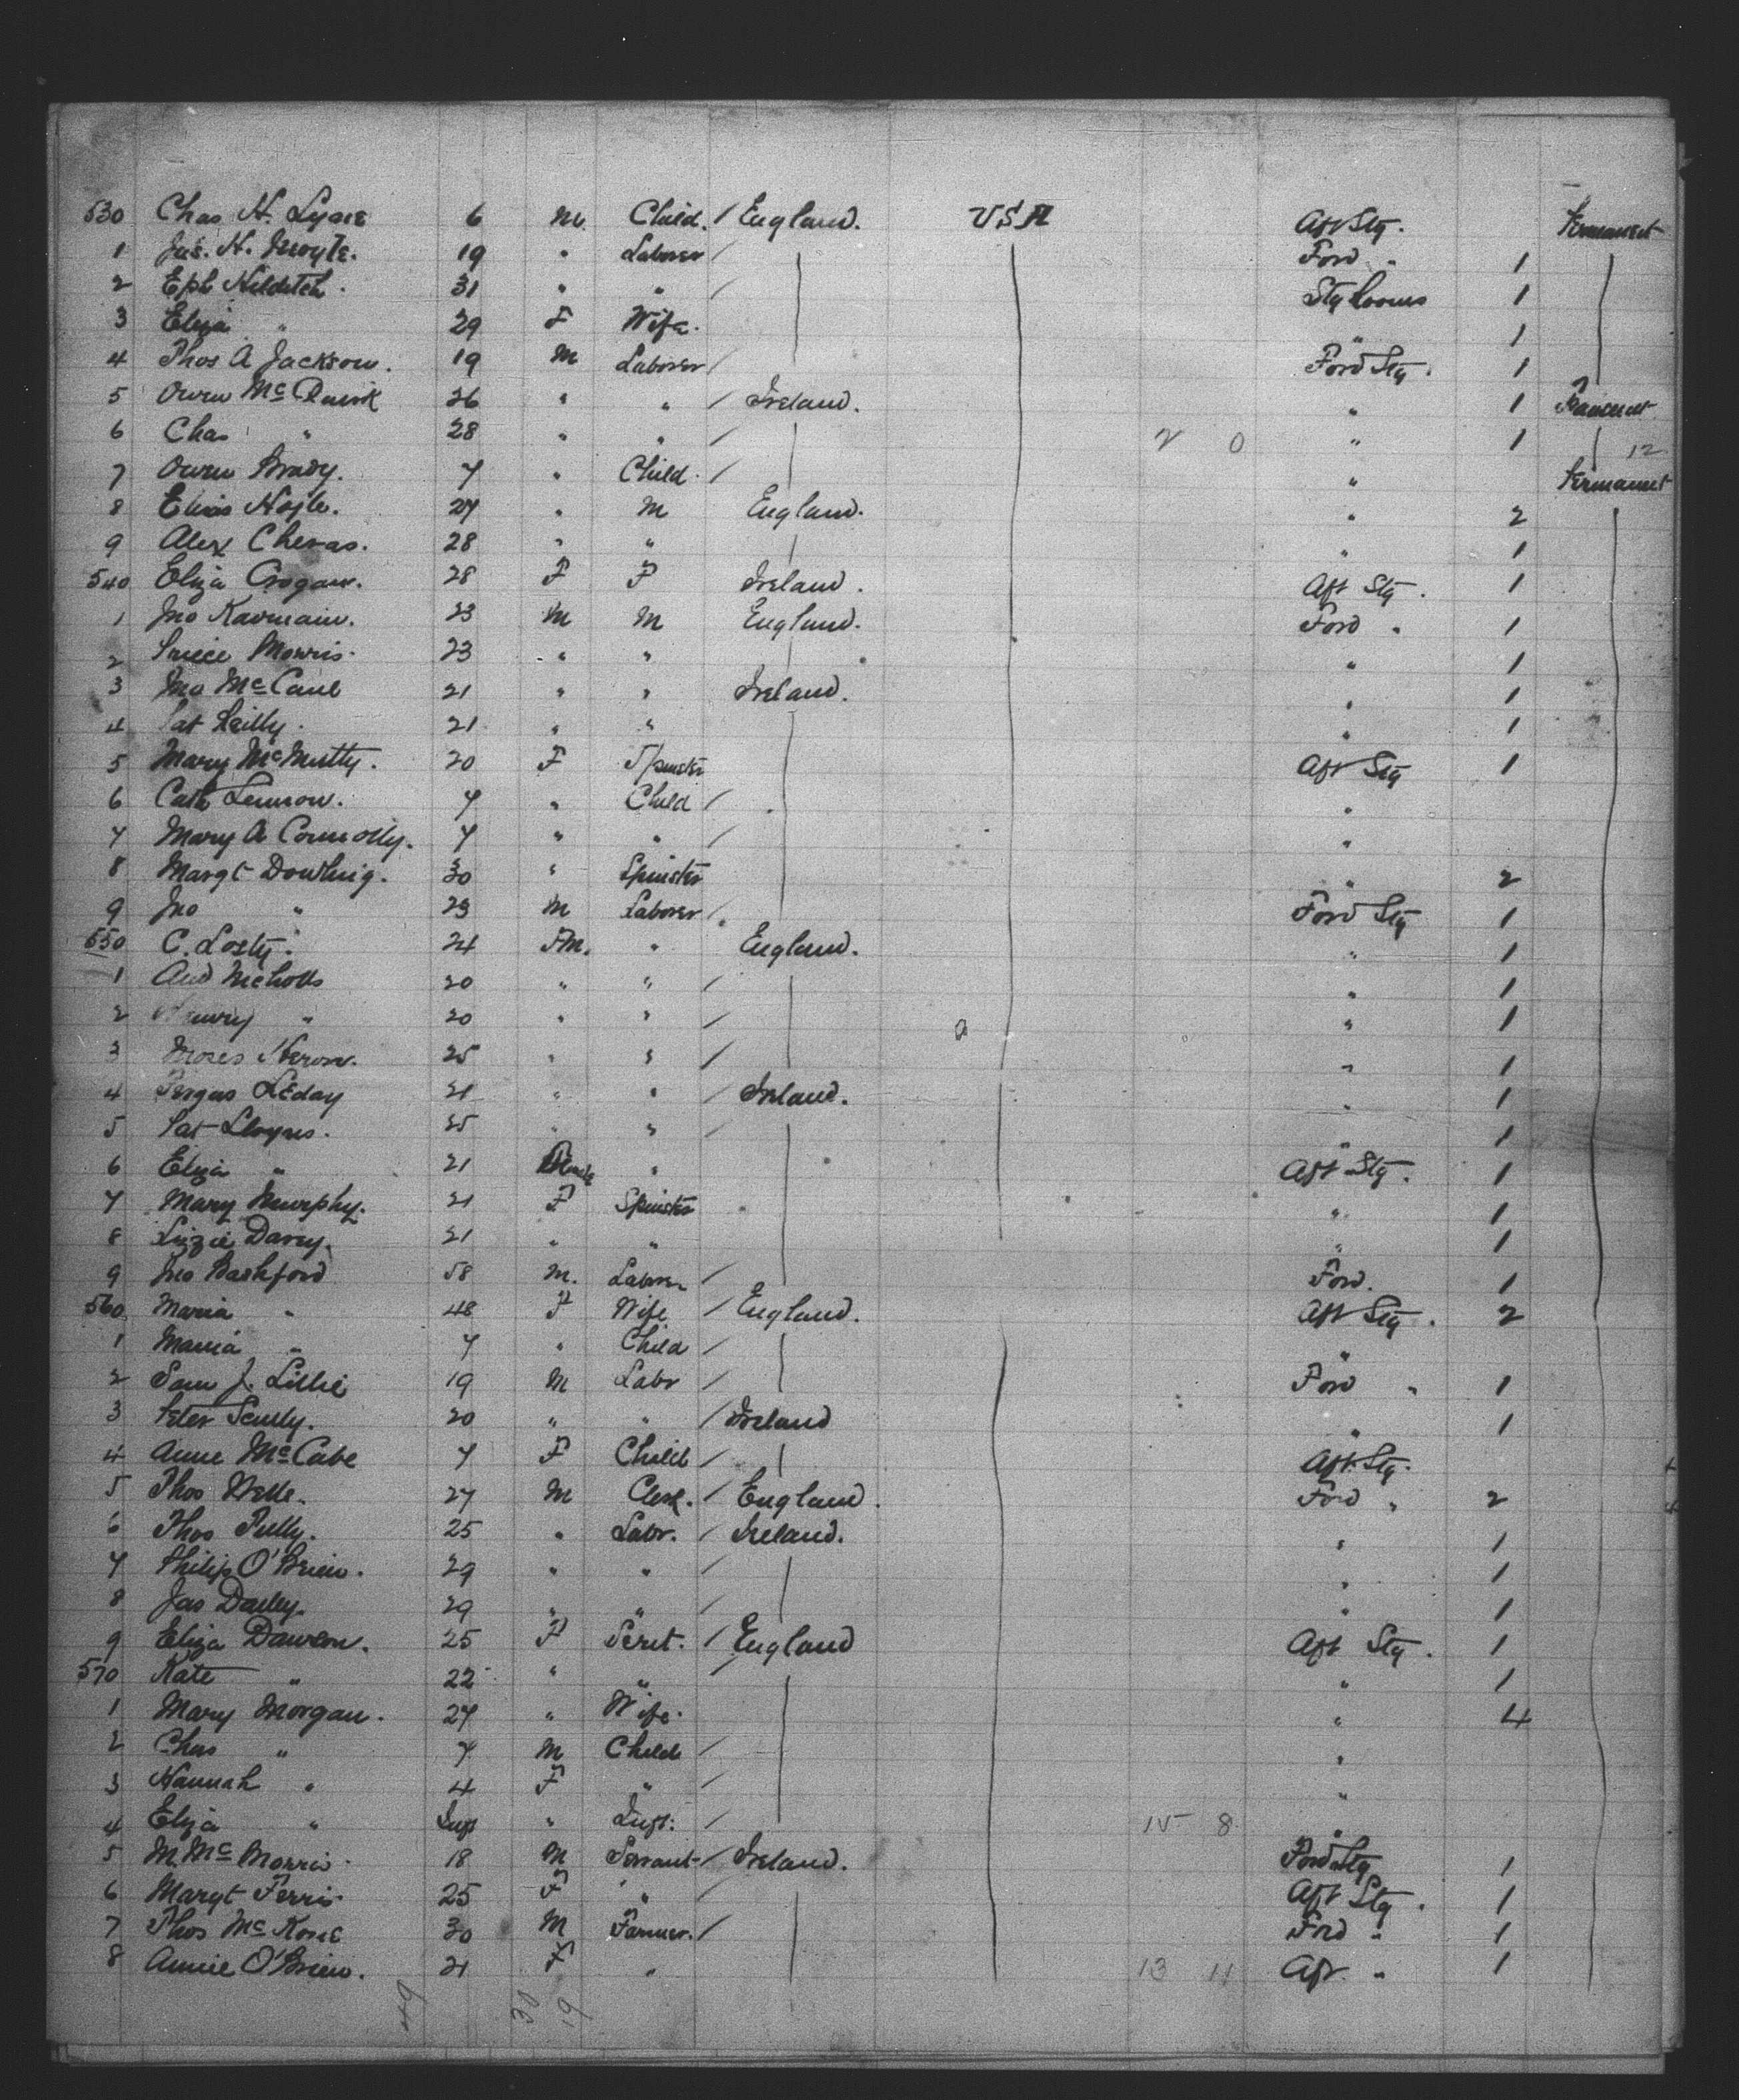 530 Chas H. Lyons 6 M. Child. / England. USA Aft Stg. Permanent
1 Jas. H. 19 " Laborer / Ford " 1
2 Eph Hilditch. 31 " " / Stg Rooms 1
3 Eliza " 29 F Wife. " 1
4 Thos A Jackson. 19 M Laborer / Ford Stg. 1
5 Owen Mc 26 " " / Ireland. " 1
6 Chas " 28 " " / 2 0 " 1 12
7 Owen Brady. 7 " Child. / " Permanent
8 Elias 27 " M England. " 2
9 Alex Cheras. 28 " " " 1
540 Eliza Crogan. 28 F F Ireland. Aft Stg. 1
1 Jno 23 M M England. Ford " 1
2 Morris. 23 " " " 1
3 Jno McCaul 21 " " Ireland. " 1
4 Pat Reilly. 21 " " " 1
5 Mary McNutty. 20 F Spinster Aft Stg 1
6 Cath Lennon. 7 " Child / "
7 Mary A Connolly. 7 " " / "
8 Margt Dowling. 30 " Spinster " 2
9 Jno " 23 M Laborer / Ford Stg 1
550 C. Losty. 24 M. " England. " 1
1 And Nicholls 20 " " / " 1
2 " 20 " " / " 1
3 Moses Heron. 25 " " / " 1
4 Fergus Leday 21 " " / Ireland. " 1
5 Pat 25 " " / " 1
6 Eliza " 21 " Aft Stg. 1
7 Mary Murphy. 21 F Spinster " 1
8 Lizzie Darcy. 21 " " " 1
9 Jno Bashford 58 M. Laborer / Ford. 1
560 Maria " 48 F Wife / England. Aft Stg. 2
1 Maria " 7 " Child / "
2 Sam J. Lillie 19 M Labr / Ford " 1
3 Peter Scully. 20 " " / Ireland " 1
4 Anne McCabe 7 F Child / Aft Stg.
5 Thos 27 M Clerk. / England. Ford " 2
6 Thos Tully. 25 " Labr. / Ireland. " 1
7 Philip O'Brien. 29 " " / " 1
8 Jas Dailey. 29 " " / " 1
9 Eliza Dawson. 25 F Servt. / England Aft Stg. 1
570 Kate " 22 " " / " 1
1 Mary Morgan. 27 " Wife. " 4
2 Chas " 7 M Child / "
3 Hannah " 4 F " / "
4 Eliza " Inft " Inft. / 15 8 "
5 M. McMorris. 18 M Servant / Ireland. Ford Stg 1
6 Margt Ferris 25 F " / Aft Stg. 1
7 Thos McKone 30 M Farmer. / Ford " 1
8 Annie O'Brien. 21 F " 13 11 Aft. " 1